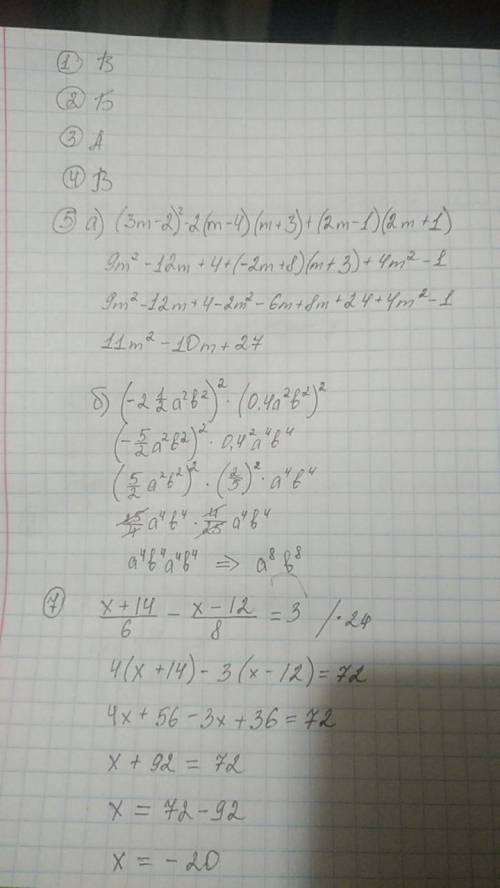 ① В
② Б
③ А
④ В
⑤ а) (3m-2)²-2(m-4)(m+3)+(2m-1)(2m+1)
9m²-12m+4+(-2m+8)(m+3)+4m²-1
9m²-12m+4-2m²-6m+8m+24+4m²-1
11m²-10m+27
б) (-2 1/2 a²b²)² · (0,4a²b²)²
(-5/2 a²b²)² · 0,4²a⁴b⁴
(5/2 a²b²)² · (2/5)² · a⁴b⁴
25/4 a⁴b⁴ · 4/25 a⁴b⁴
a⁴b⁴a⁴b⁴ => a⁸b⁸
⑦ x+14/6 - x-12/8 = 3 /·24
4(x+14)-3(x-12)=72
4x+56-3x+36=72
x+92=72
x=72-92
x=-20